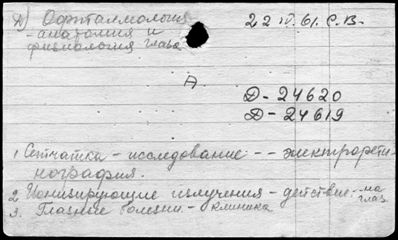 А) Офтальмология
- анатомия и
физиология глаза
22 IV. 61. С. В.
А
Д - 24620
Д - 24619
1 Сетчатка - исследование -- электрорети-
нография.
2 Ионизирующие излучения - действие - на
глаз.
3. Глазные болезни - клиника